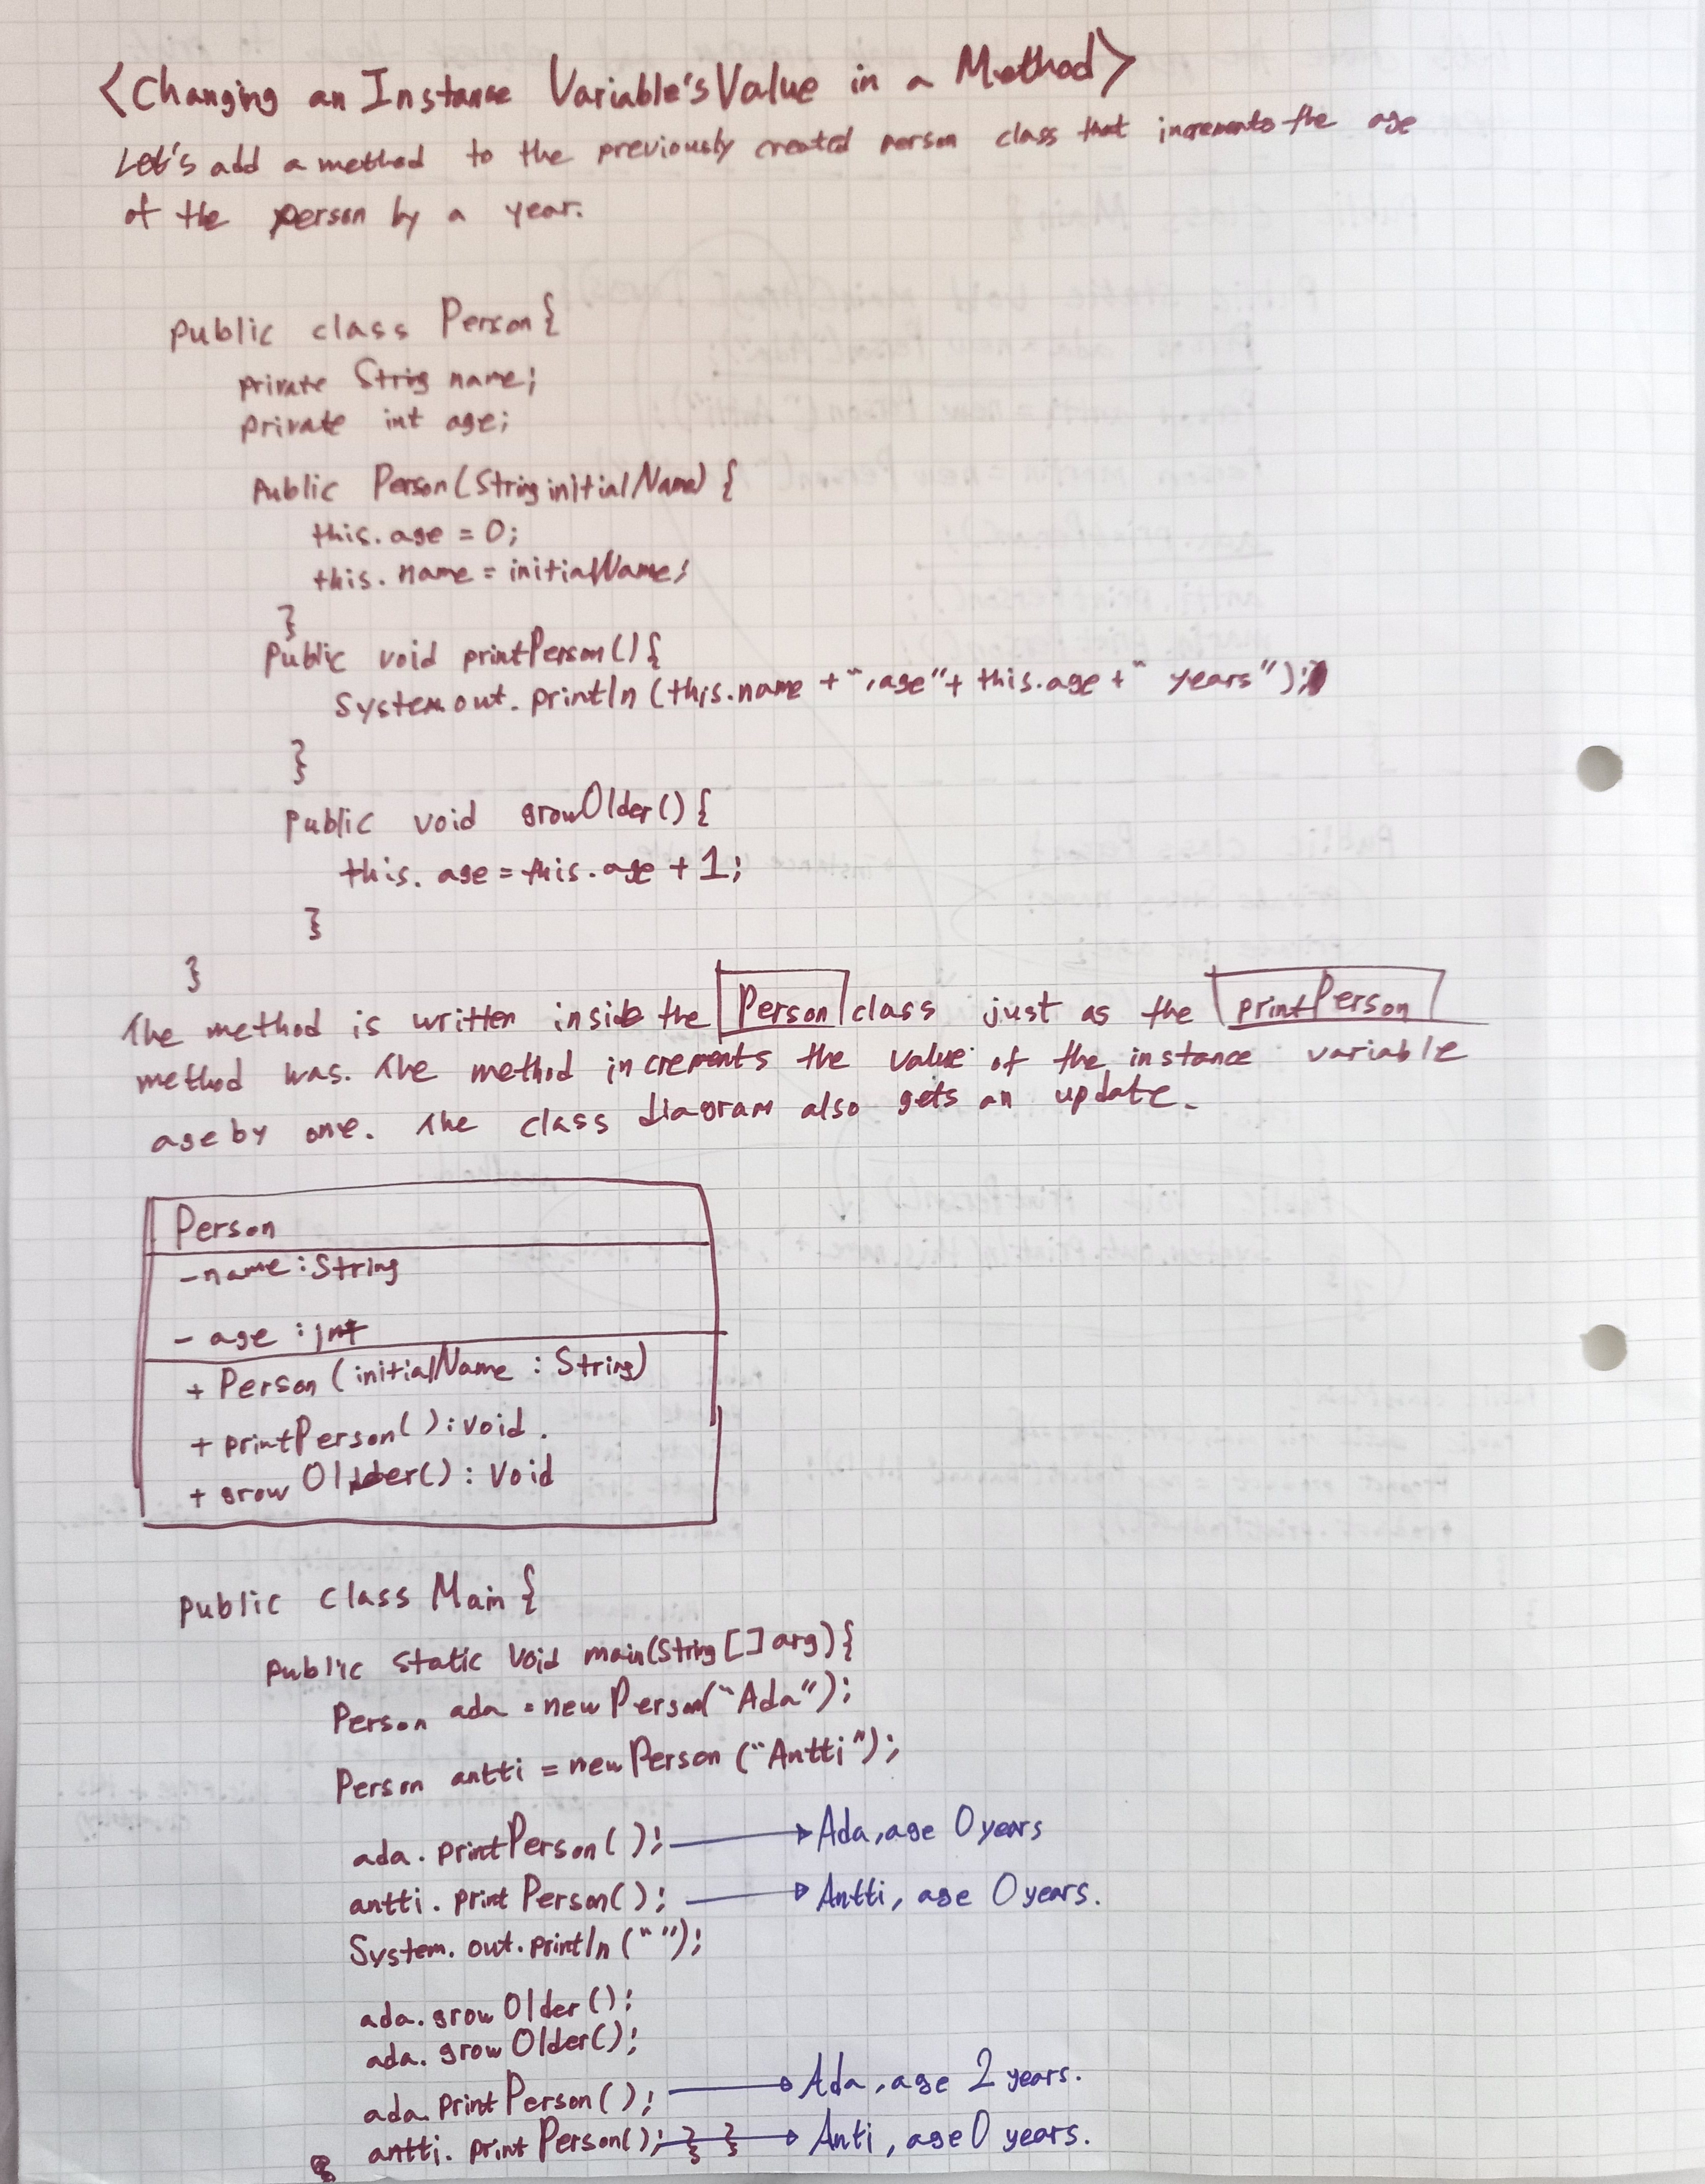 <Changing an Instance Variable's Value in a Method>
Let's add a method to the previously created person class that increments the age
of the person by a year.
public class Person{
private String name;
private int age;
Public Person(String initialName) {
this.age = 0;
this.name = initialName;
}
Public void printPerson(){
System.out.println(this.name + ", age" + this.age + " years");
}
public void growOlder(){
this.age = this.age + 1;
}
}
The method is written inside the Person class just as the printPerson
method was. The method increments the value of the instance variable
age by one. The class diagram also gets an update.
Person
- name : String
- age : int
+ Person (initialName : String)
+ printPerson( ) : void.
+ growOlder() : Void
public class Main{
public static void main(String [] arg){
Person ada = new Person("Ada");
Person antti = new Person ("Antti");
ada.printPerson( ); → Ada, age 0 years
antti.printPerson( ); → Antti, age 0 years.
System.out.println ("");
ada.growOlder ();
ada.growOlder();
ada.printPerson(); → Ada, age 2 years.
antti.printPerson(); } } → Anti, age 0 years.